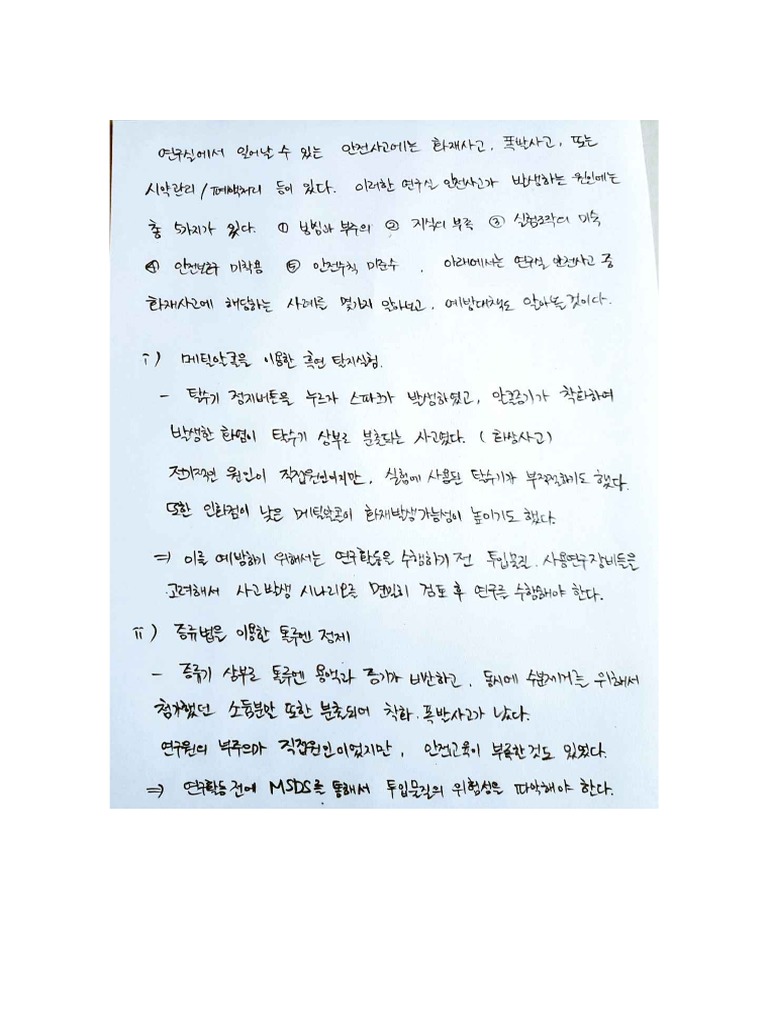 연구실에서 일어날 수 있는 안전사고에는 화재사고, 폭발사고, 또는
시약관리/폐액처리 등이 있다. 이러한 연구실 안전사고가 발생하는 원인에는
총 5가지가 있다. ① 방심과 부주의 ② 지식의 부족 ③ 실험조작의 미숙
④ 안전보호구 미착용 ⑤ 안전수칙 미준수. 아래에서는 연구실 안전사고 중
화재사고에 해당하는 사례를 몇가지 알아보고, 예방대책도 알아볼 것이다.
ⅰ) 메틸알콜을 이용한 흑연 탈지실험.
- 탈수기 정지버튼을 누르자 스파크가 발생하였고, 알콜증기가 착화하여
발생한 화염이 탈수기 상부로 분출되는 사고였다. (화상사고)
전기적인 원인이 직접원인이지만, 실험에 사용된 탈수기가 부적절하기도 했다.
또한 인화점이 낮은 메틸알콜이 화재발생가능성이 높이기도 했다.
⇒ 이를 예방하기 위해서는 연구활동을 수행하기 전 투입물질, 사용연구장비등을
고려해서 사고발생 시나리오를 면밀히 검토 후 연구를 수행해야 한다.
ⅱ) 증류법을 이용한 톨루엔 정제
- 증류기 상부로 톨루엔 용액과 증기가 비산하고, 동시에 수분제거를 위해서
첨가했던 소듐분말 또한 분출되어 착화·폭발사고가 났다.
연구원의 부주의가 직접원인이었지만, 안전교육이 부족한것도 있었다.
⇒ 연구활동 전에 MSDS를 통해서 투입물질의 위험성을 파악해야 한다.